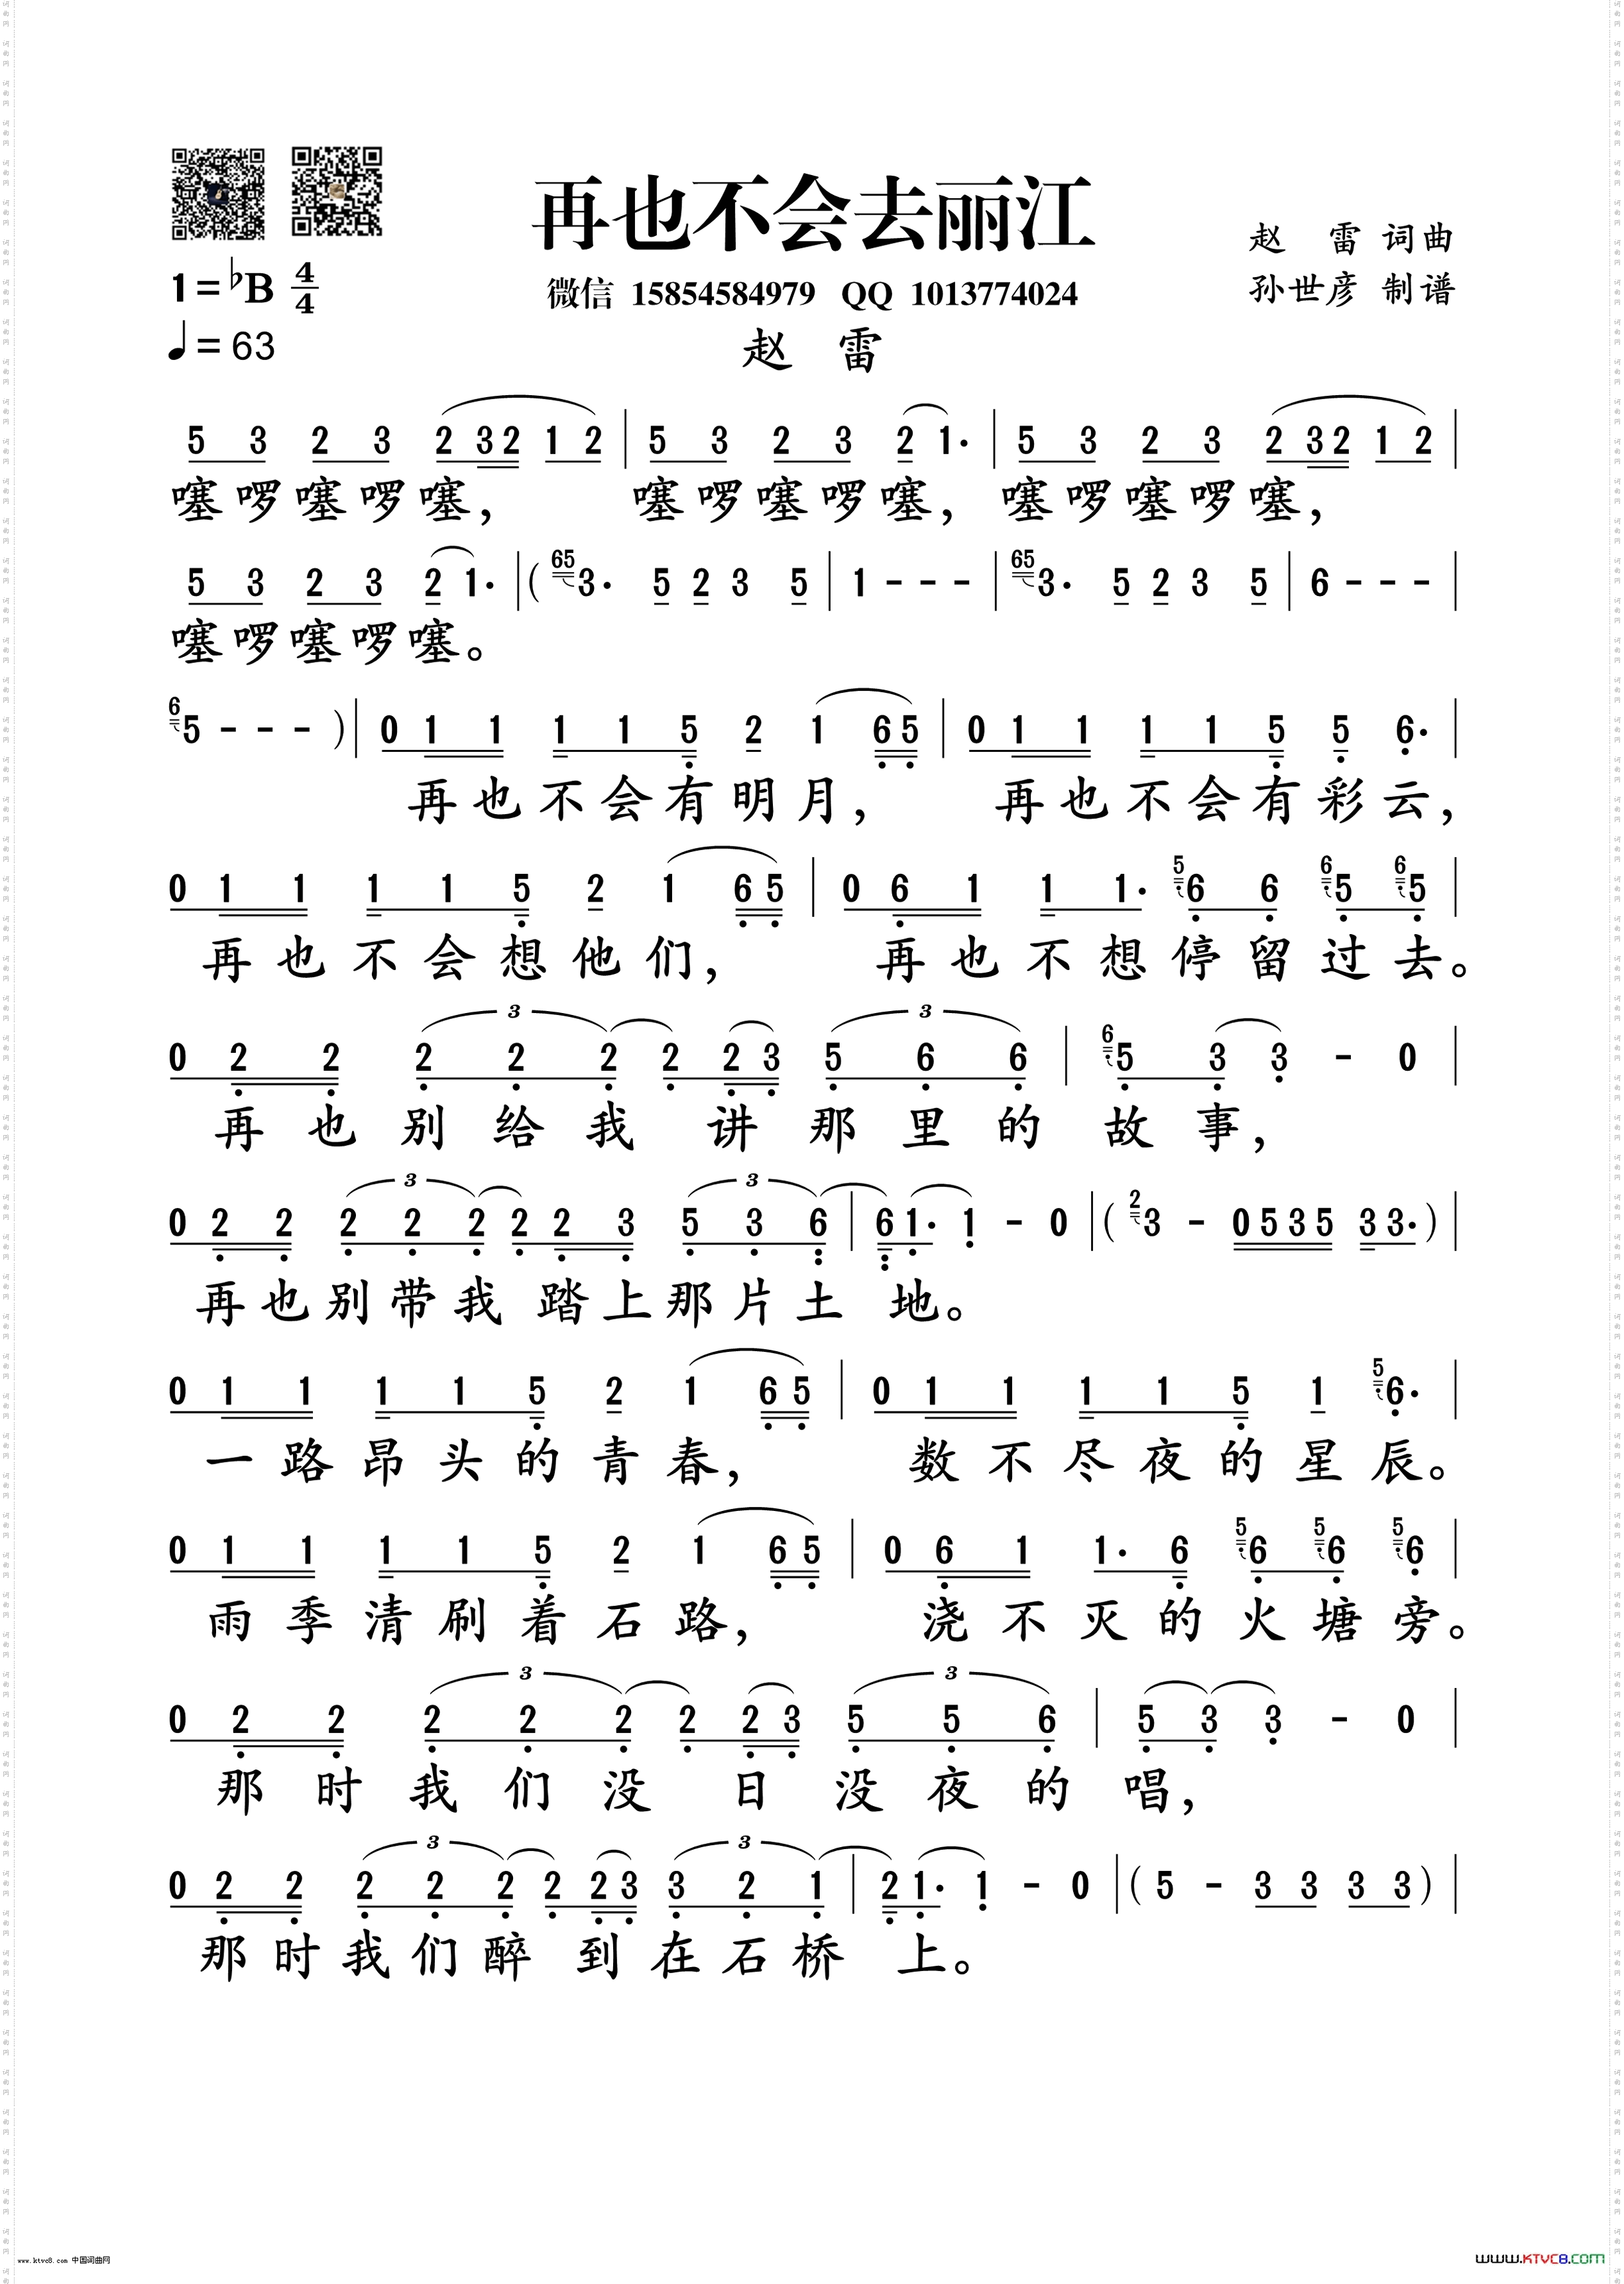 再也不会去丽江
赵 雷 词曲
1=♭B 4/4
微信 15854584979 QQ 1013774024
孙世彦 制谱
♩=63
赵 雷
5 3 2 3 2 3 2 1 2 | 5 3 2 3 2 1· | 5 3 2 3 2 3 2 1 2 |
噻啰噻啰噻， 噻啰噻啰噻， 噻啰噻啰噻，
5 3 2 3 2 1· | ( 65 3· 5 2 3 5 | 1 - - - | 65 3· 5 2 3 5 | 6 - - - |
噻啰噻啰噻。
6 5 - - - ) | 0 1 1 1 1 5 2 1 6 5 | 0 1 1 1 1 5 5 6· |
再也不会有明月， 再也不会有彩云，
0 1 1 1 1 5 2 1 6 5 | 0 6 1 1 1· 5 6 6 6 5 6 5 |
再也不会想他们， 再也不想停留过去。
3 3
0 2 2 2 2 2 2 2 3 5 6 6 | 6 5 3 3 - 0 |
再也别给我讲那里的故事，
3 3
0 2 2 2 2 2 2 2 3 5 3 6 | 6 1· 1 - 0 | ( 2 3 - 0 5 3 5 3 3· ) |
再也别带我踏上那片土地。
0 1 1 1 1 5 2 1 6 5 | 0 1 1 1 1 5 1 5 6· |
一路昂头的青春， 数不尽夜的星辰。
0 1 1 1 1 5 2 1 6 5 | 0 6 1 1· 6 5 6 5 6 5 6 |
雨季清刷着石路， 浇不灭的火塘旁。
3 3
0 2 2 2 2 2 2 2 3 5 5 6 | 5 3 3 - 0 |
那时我们没日没夜的唱，
3 3
0 2 2 2 2 2 2 2 3 3 2 1 | 2 1· 1 - 0 | ( 5 - 3 3 3 3 ) |
那时我们醉到在石桥上。
www.ktvc8.com 中国词曲网
www.KTVC8.com